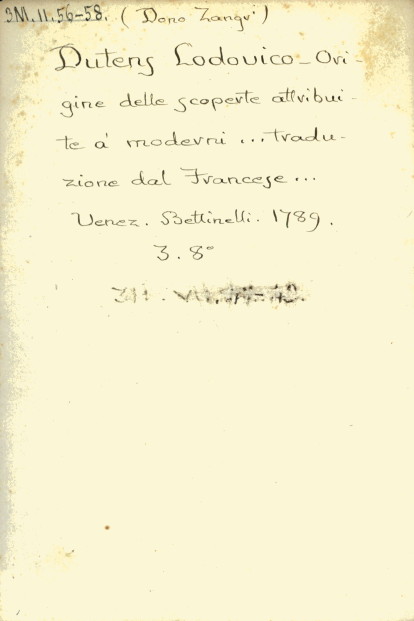 3.M.11.56-58. (Dono Zangri)
Dutens Lodovico - Ori-
gine delle scoperte attribui-
te a' moderni ... tradu-
zione dal Francese ...
Venez. Bettinelli. 1789.
3. 8°